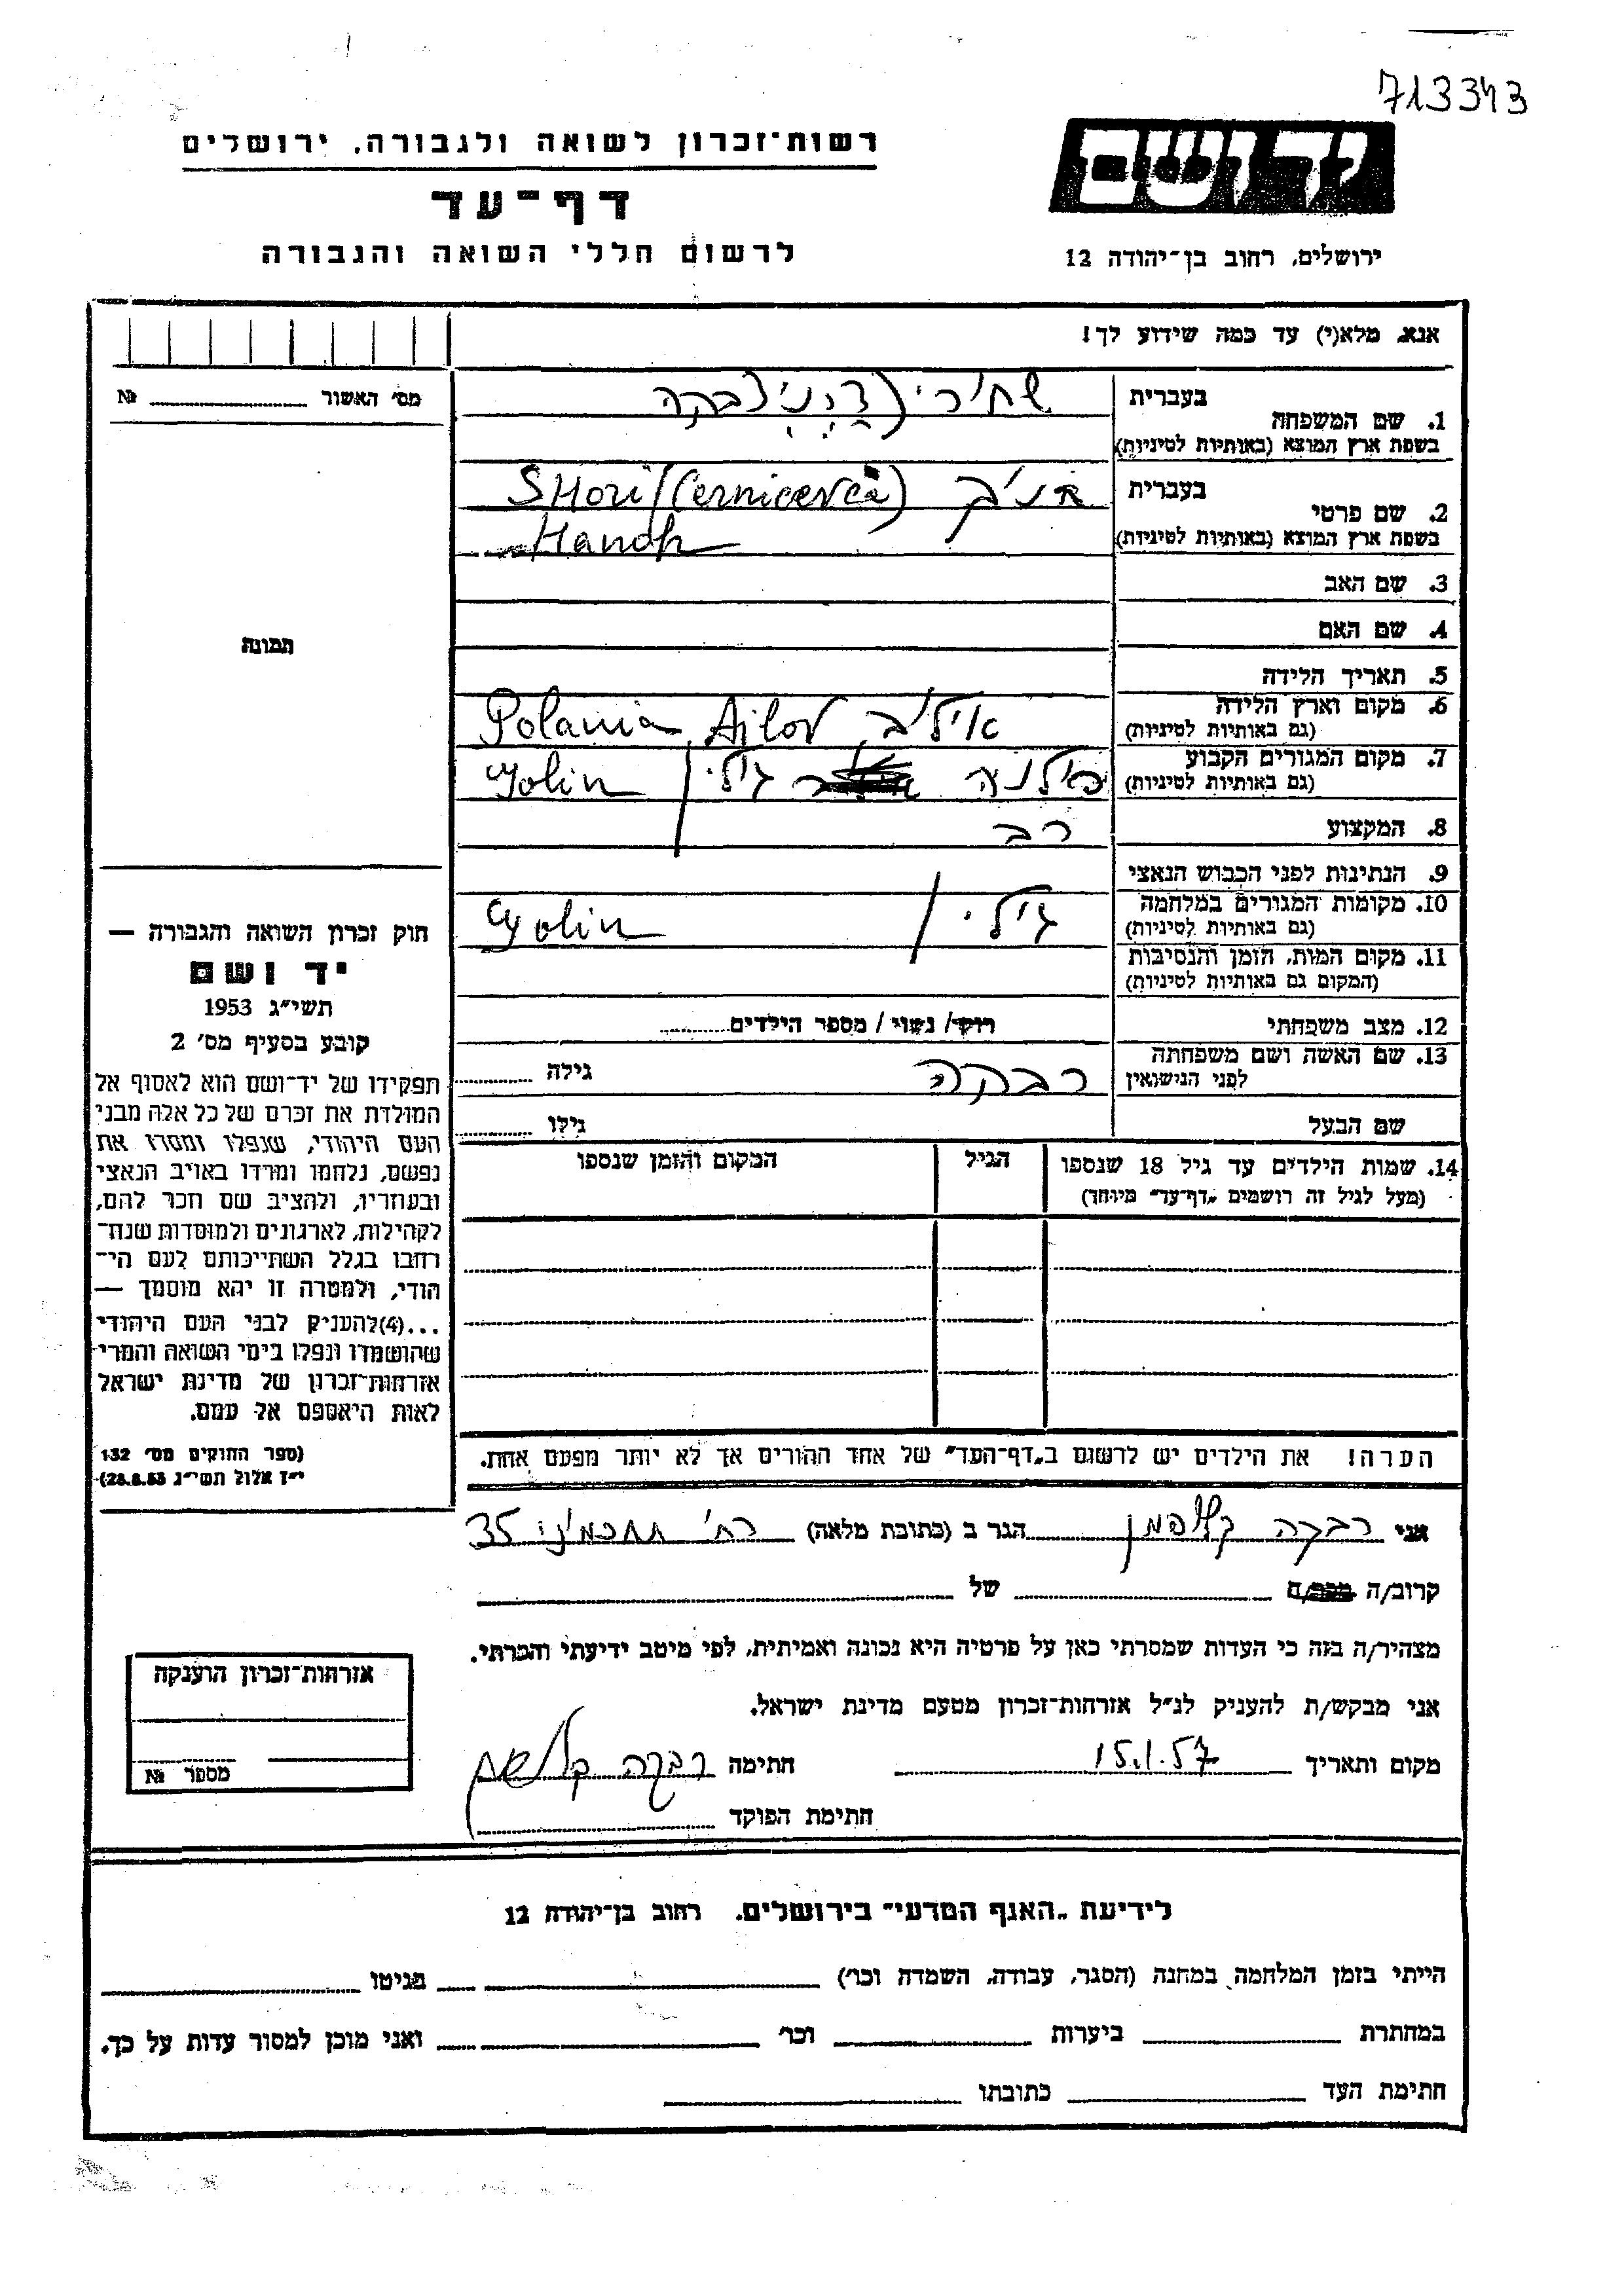 713343
רשות־זכרון לשואה ולגבורה, ירושלים
יד ושם
דף־עד
לרשום חללי השואה והגבורה
ירושלים, רחוב בן־יהודה 12
אנא, מלא(י) עד כמה שידוע לך!
מס׳ האשור №
תמונה
1. שם המשפחה
בעברית שחורי
בשפת ארץ המוצא (באותיות לטיניות)
2. שם פרטי
בעברית SHori (Cernicevca)
בשפת ארץ המוצא (באותיות לטיניות) Hanoh
3. שם האב
4. שם האם
5. תאריך הלידה
6. מקום וארץ הלידה
(גם באותיות לטיניות) אילוב Ajlov Polania
7. מקום המגורים הקבוע
(גם באותיות לטיניות) yolin
8. המקצוע רב
9. הנתינות לפני הכבוש הנאצי
10. מקומות המגורים במלחמה
(גם באותיות לטיניות) yolin
11. מקום המות, הזמן והנסיבות
(המקום גם באותיות לטיניות)
12. מצב משפחתי רוק/ נשוי / מספר הילדים
13. שם האשה ושם משפחתה
לפני הנישואין רבקה גילה
שם הבעל גילו
14. שמות הילדים עד גיל 18 שנספו הגיל המקום והזמן שנספו
(מעל לגיל זה רושמים „דף־עד” מיוחד)
הערה! את הילדים יש לרשום ב„דף־העד” של אחד ההורים אך לא יותר מפעם אחת.
חוק זכרון השואה והגבורה —
יד ושם
תשי״ג 1953
קובע בסעיף מס׳ 2
תפקידו של יד־ושם הוא לאסוף אל
המולדת את זכרם של כל אלה מבני
העם היהודי, שנפלו ומסרו את
נפשם, נלחמו ומרדו באויב הנאצי
ובעוזריו, ולהציב שם וזכר להם,
לקהילות, לארגונים ולמוסדות שנח־
רבו בגלל השתייכותם לעם הי־
הודי, ולמטרה זו יהא מוסמך —
...(4)להעניק לבני העם היהודי
שהושמדו ונפלו בימי השואה והמרי
אזרחות־זכרון של מדינת ישראל
לאות היאספם אל עמם.
(ספר החוקים מס׳ 132
י״ז אלול תשי״ג 28.8.53)
אני רבקה הגר ב (כתובת מלאה) רח׳ תחכמוני 35
קרוב/ה של
מצהיר/ה בזה כי העדות שמסרתי כאן על פרטיה היא נכונה ואמיתית, לפי מיטב ידיעתי והכרתי.
אני מבקש/ת להעניק לנ״ל אזרחות־זכרון מטעם מדינת ישראל.
מקום ותאריך 15.1.57 חתימה רבקה
חתימת הפוקד
אזרחות־זכרון הוענקה
מספר №
לידיעת „האגף המדעי” בירושלים, רחוב בן־יהודה 12
הייתי בזמן המלחמה במחנה (הסגר, עבודה, השמדה וכו׳) בגיטו
במחתרת ביערות וכו׳ ואני מוכן למסור עדות על כך.
חתימת העד כתובתו